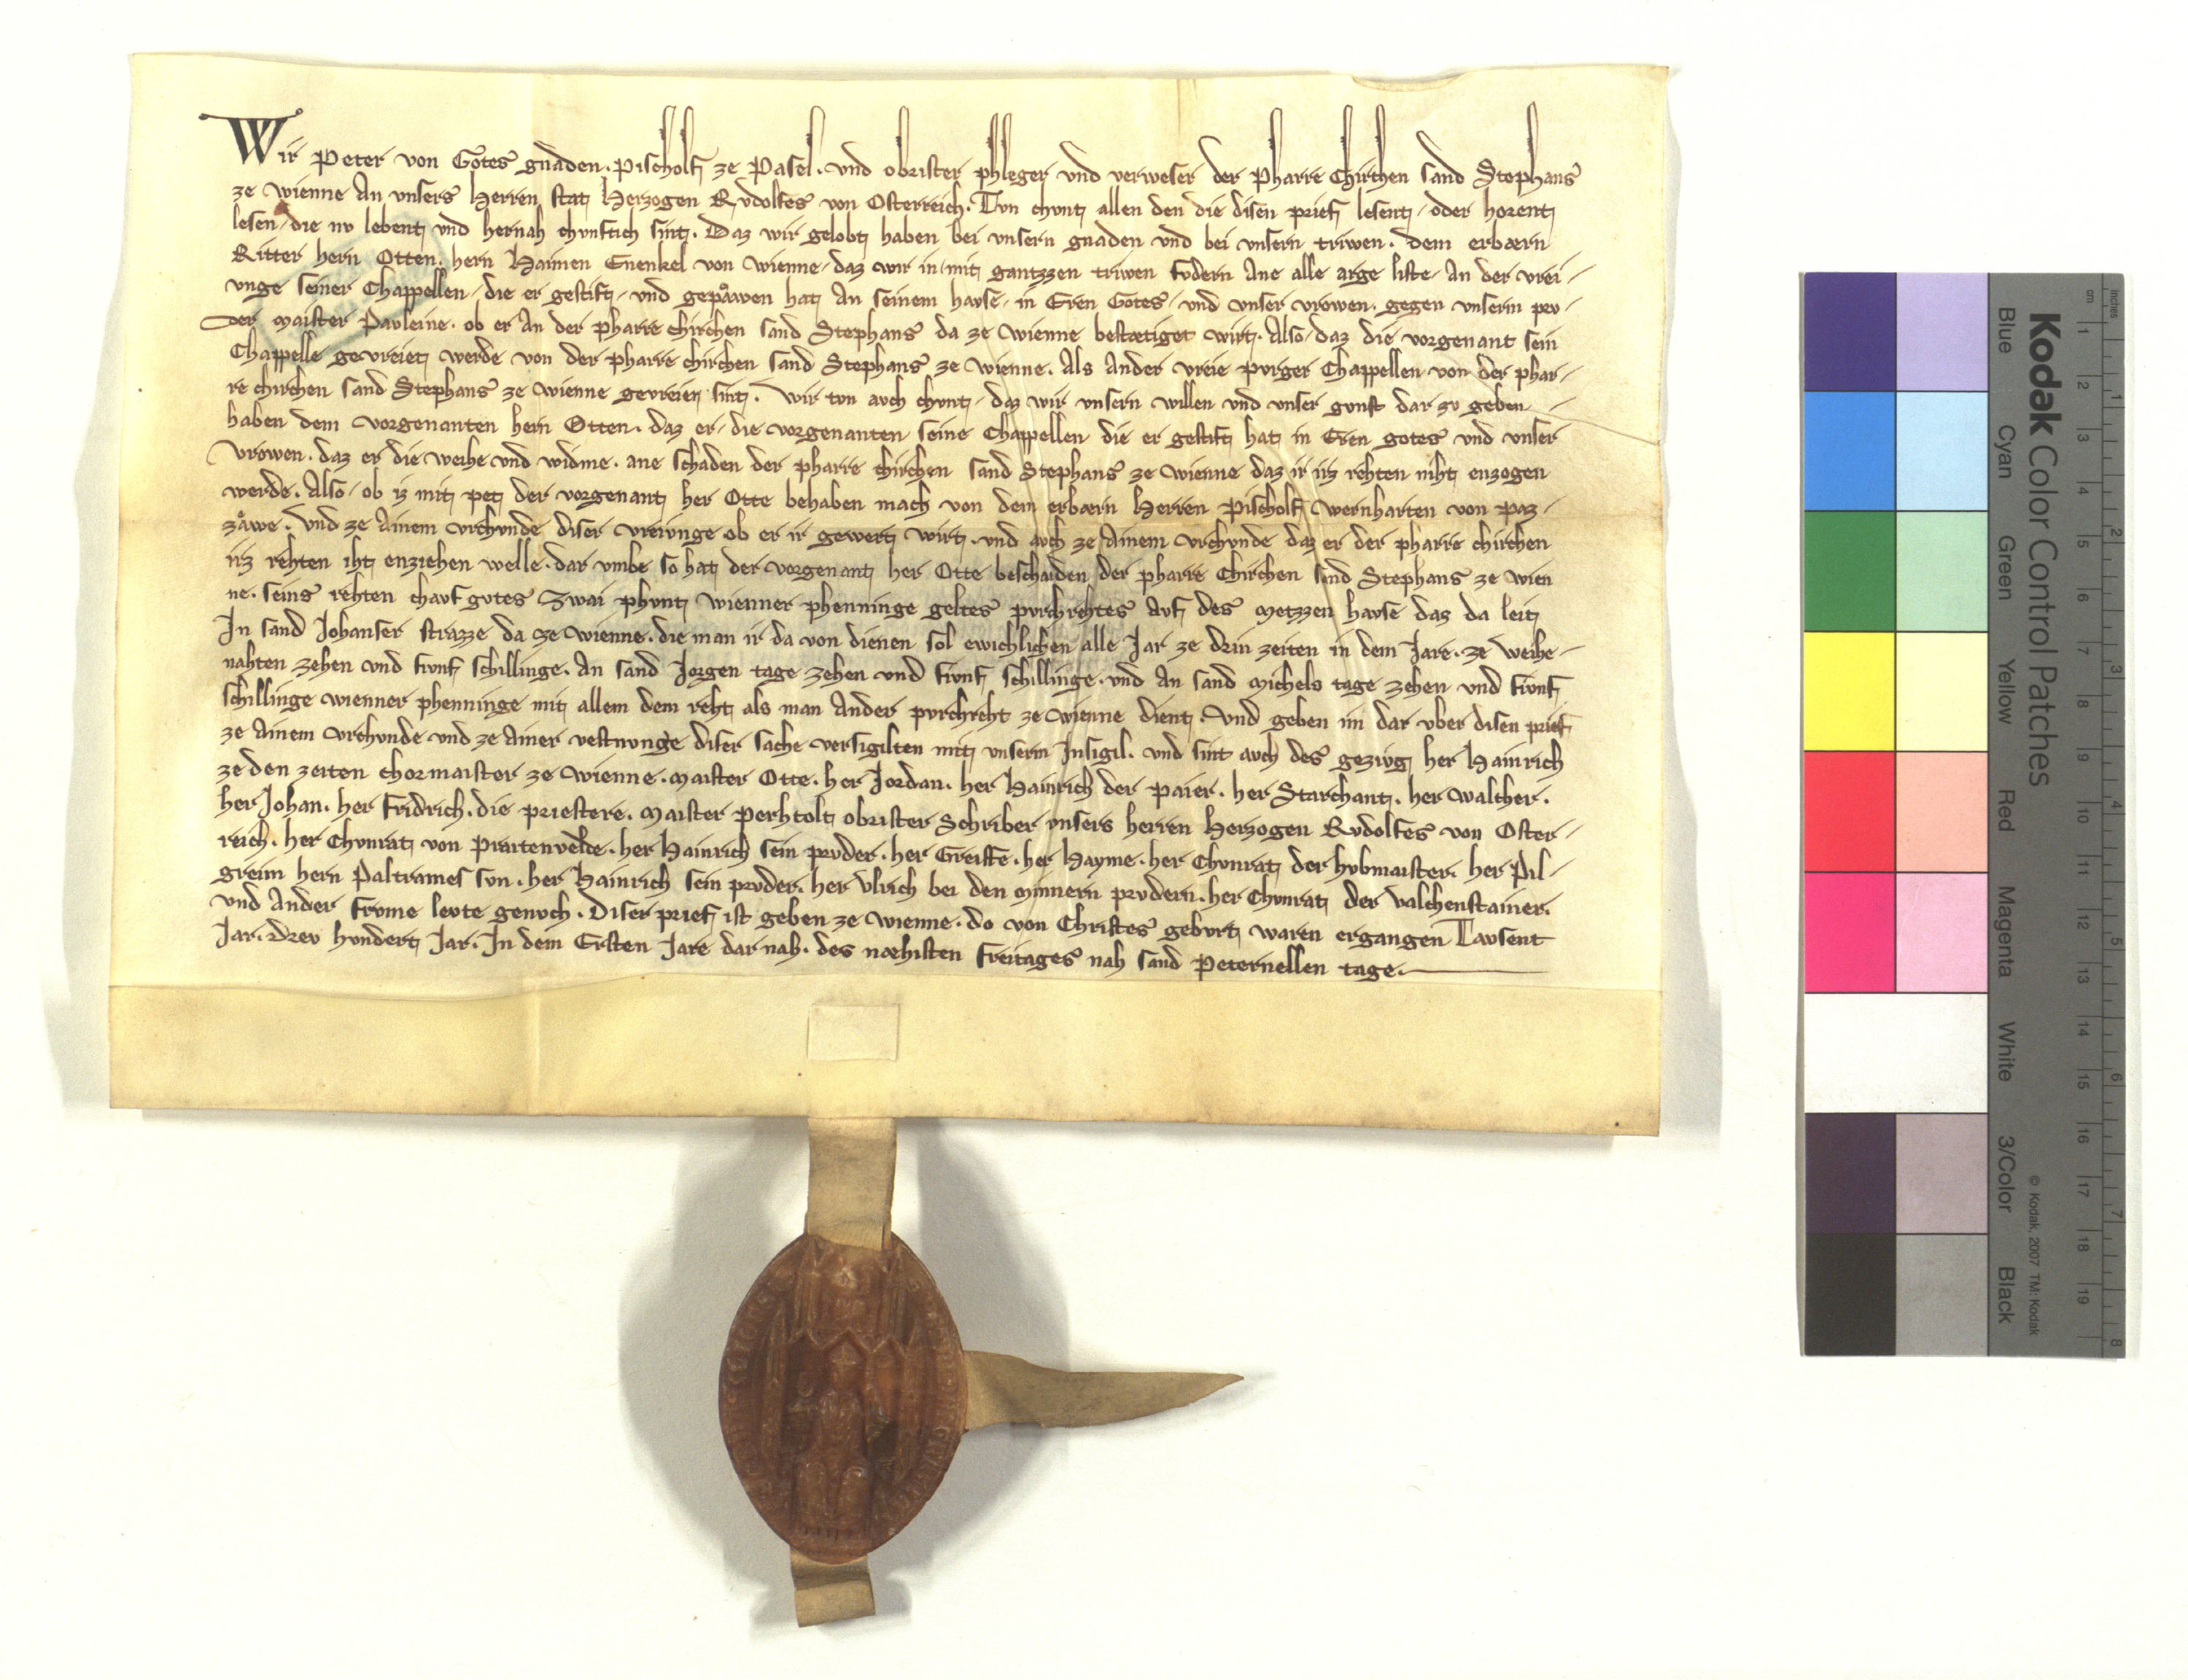 Wir Peter von Gotes gnaden. Pischolf ze Pasel. vnd obrister phleger vnd verweser der Pharre Chirchen sand Stephans
ze wienne An vnsers Herren stat Herzogen Rvdolfes von Osterreich. Tvn chvnt allen den die disen prief lesent, oder horent
lesen, die nv lebent vnd hernah chvnftich sint. Daz wir gelobt haben bei vnsern gnaden vnd bei vnsern triwen. dem erbærn
Ritter hern Otten. hern Haimen Enenkel von wienne, daz wir in mit gantzzen triwen fvdern Ane alle arge liste, An der vrei-
vnge seiner Chappellen, die er gestift, vnd gepåwen hat An seinem havse, in Eren Gotes, vnd vnser vrowen. gegen vnserm prv-
der maister Pavleine. ob er An der pharre chirchen sand Stephans da ze wienne bestætiget wirt. Also, daz die vorgenant sein
Chappelle gevreiet werde von der pharre chirchen sand Stephans ze wienne. Als Ander vreie pvrger Chappellen von der phar-
re chirchen sand Stephans ze wienne gevreiet sint. wir tvn avch chvnt, daz wir vnsern willen vnd vnser gvnst dar zv geben
haben dem vorgenanten hern Otten. daz er, die vorgenanten seine Chappellen die er gestift hat in Eren gotes vnd vnser
vrowen. daz er die weihe vnd widme. ane schaden der pharre chirchen sand Stephans ze wienne daz ir irz rehten niht enzogen
werde. Also, ob iz mit pet der vorgenant her Otte behaben mach von dem erbærn Herren Pischolf wernharten von paz-
zåwe. vnd ze Ainem vrchvnde diser vreivnge ob er ir gewert wirt. vnd avch ze Ainem vrchvnde daz er der pharre chirchen
irz rehten iht enziehen welle. dar vmbe so hat der vorgenant her Otte beschaiden der pharre Chirchen sand Stephans ze wien
ne. seins rehten chavf gvtes Zwai phvnt wienner phenninge geltes pvrchrehtes Avf des Metzzen havse daz da leit
In sand Johanser strazze da ze wienne. die man ir da von dienen sol ewichlichen alle Jar ze drin zeiten in dem Jare. ze weihe-
nahten zehen vnd fivnf schillinge. An sand Jorgen tage zehen vnd fivnf schillinge. vnd An sand Michels tage zehen vnd fivnf
schillinge wienner phenninge mit allem dem reht als man Ander pvrchreht ze wienne dient. Vnd geben im dar vber disen prief
ze Ainem vrchvnde vnd ze Ainer vestnvnge diser sache versigilten mit vnserm Insigil. vnd sint avch des gezivg her Hainrich
ze den zeiten chormaister ze wienne. Maister Otte. her Jordan. her Hainrich der Paier. her Starchant. her walther.
her Johan. her Fridrich. die priestere. Maister perhtolt obrister Schriber vnsers herren Herzogen Rvdolfes von Oster-
reich. her Chvnrat von Praitenvelde. her Hainrich sein prvder. her Greiffe. her Hayme. her Chvnrat der hvbmaister. her Pil-
greim hern Paltrames svn. her Hainrich sein prvder. her Vlrich bei den Minnern prvdern. her Chvnrat der valchenstainer.
vnd Ander frvme levte genvch. Diser prief ist geben ze wienne. do von Christes gebvrt waren ergangen Tavsent
Jar. drev hvndert Jar. In dem Ersten Jare dar nah. des næhisten freitages nah sand Peternellen tage.
Kodak Color Control Patches
© Kodak, 2007 TM: Kodak
Blue Cyan Green Yellow Red Magenta White 3/Color Black
cm 1 2 3 4 5 6 7 8 9 10 11 12 13 14 15 16 17 18 19
Inches 1 2 3 4 5 6 7 8